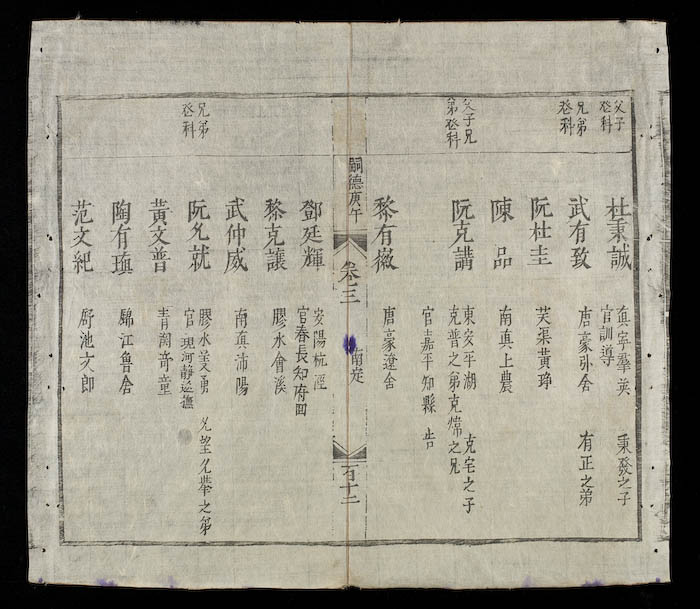 父子
登科
杜秉誠
真寧羣英 秉發之子
官訓導
兄弟
登科
武有致
唐豪外舍 有正之弟
阮杜圭
芙渠黄琤
陳品
南真上農
父子兄
弟登科
阮克講
東安平湖 克宅之子
克普之弟克煒之兄
官嘉平知縣 告
黎有薇
唐豪遼舍
嗣德庚午
卷三
南定
百十二
鄧廷輝
安陽杭涇
官春長知府回
黎克讓
膠水會溪
武仲威
南真沛陽
兄弟
登科
阮允就
膠水羙勇 允望允犖之弟
官現河靜巡撫
黄文普
青関奇童
陶有瑱
錦江魯舍
范文紀
舒池文郎